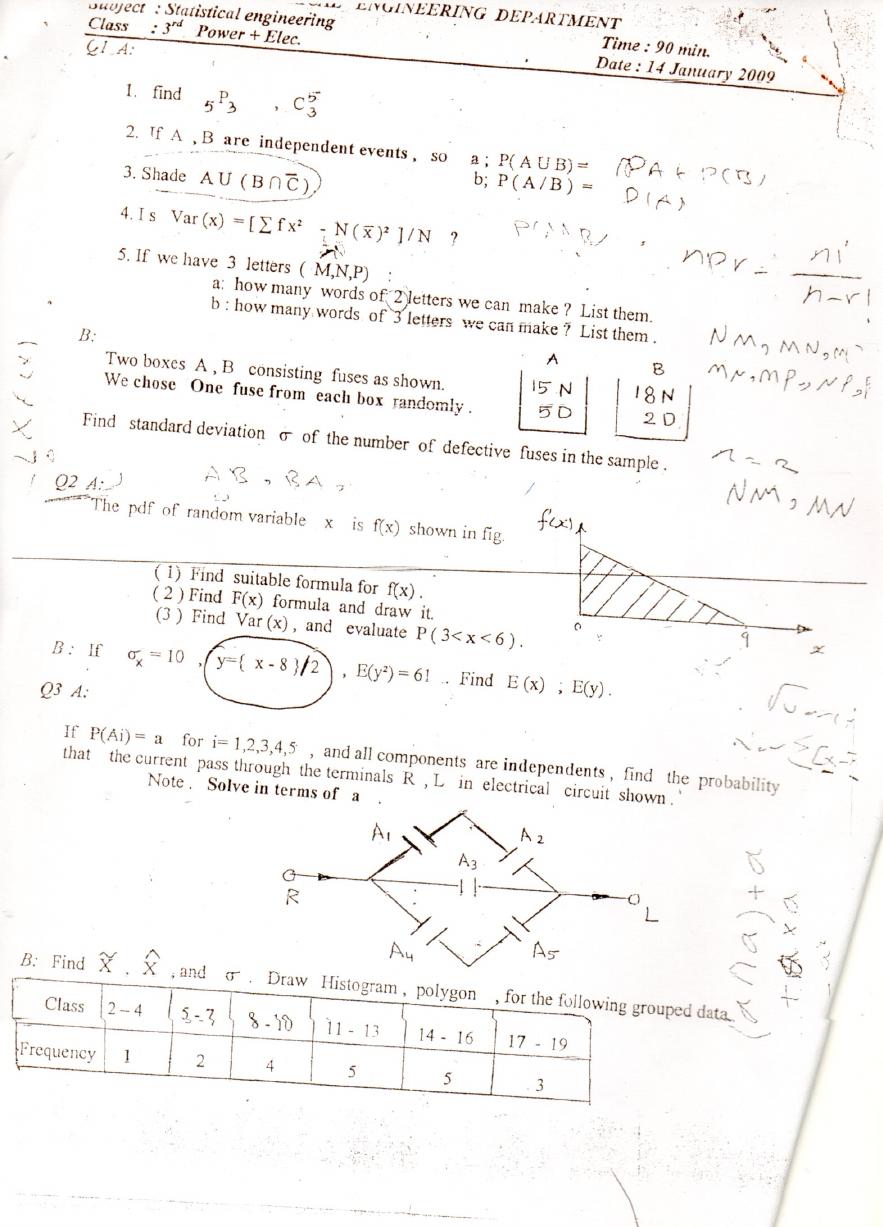 ENGINEERING DEPARTMENT
Subject : Statistical engineering
Class : 3rd Power + Elec.
Time : 90 min.
Date : 14 January 2009
Q1 A:
1. find ₅P₃ , C⁵₃
2. If A , B are independent events , so a ; P( A U B) =
b; P ( A / B ) =
3. Shade A U ( B ∩ C̅ )
4. I s Var (x) = [ ∑ f x² - N ( x̅ )² ] / N ?
nPr = n! / n-r!
5. If we have 3 letters ( M,N,P) :
a: how many words of 2 letters we can make ? List them.
b : how many words of 3 letters we can make ? List them .
NM, MN,
B:
Two boxes A , B consisting fuses as shown.
We chose One fuse from each box randomly .
A
15 N
5 D
B
18 N
2 D
Find standard deviation σ of the number of defective fuses in the sample .
AB , BA ,
NM , MN
Q2 A:
The pdf of random variable x is f(x) shown in fig.
f(x)
0
9
x
( 1) Find suitable formula for f(x) .
( 2 ) Find F(x) formula and draw it.
(3 ) Find Var (x) , and evaluate P ( 3< x < 6 ) .
B : If σx = 10 , y={ x - 8 }/2 , E(y²) = 61 . Find E (x) ; E(y) .
Q3 A:
If P(Ai) = a for i= 1,2,3,4,5 , and all components are independents , find the probability
that the current pass through the terminals R , L in electrical circuit shown .
Note . Solve in terms of a .
A1
A2
A3
R
L
A4
A5
B: Find X̃ , X̂ , and σ . Draw Histogram , polygon , for the following grouped data
Class 2 - 4 5 - 7 8 - 10 11 - 13 14 - 16 17 - 19
Frequency 1 2 4 5 5 3